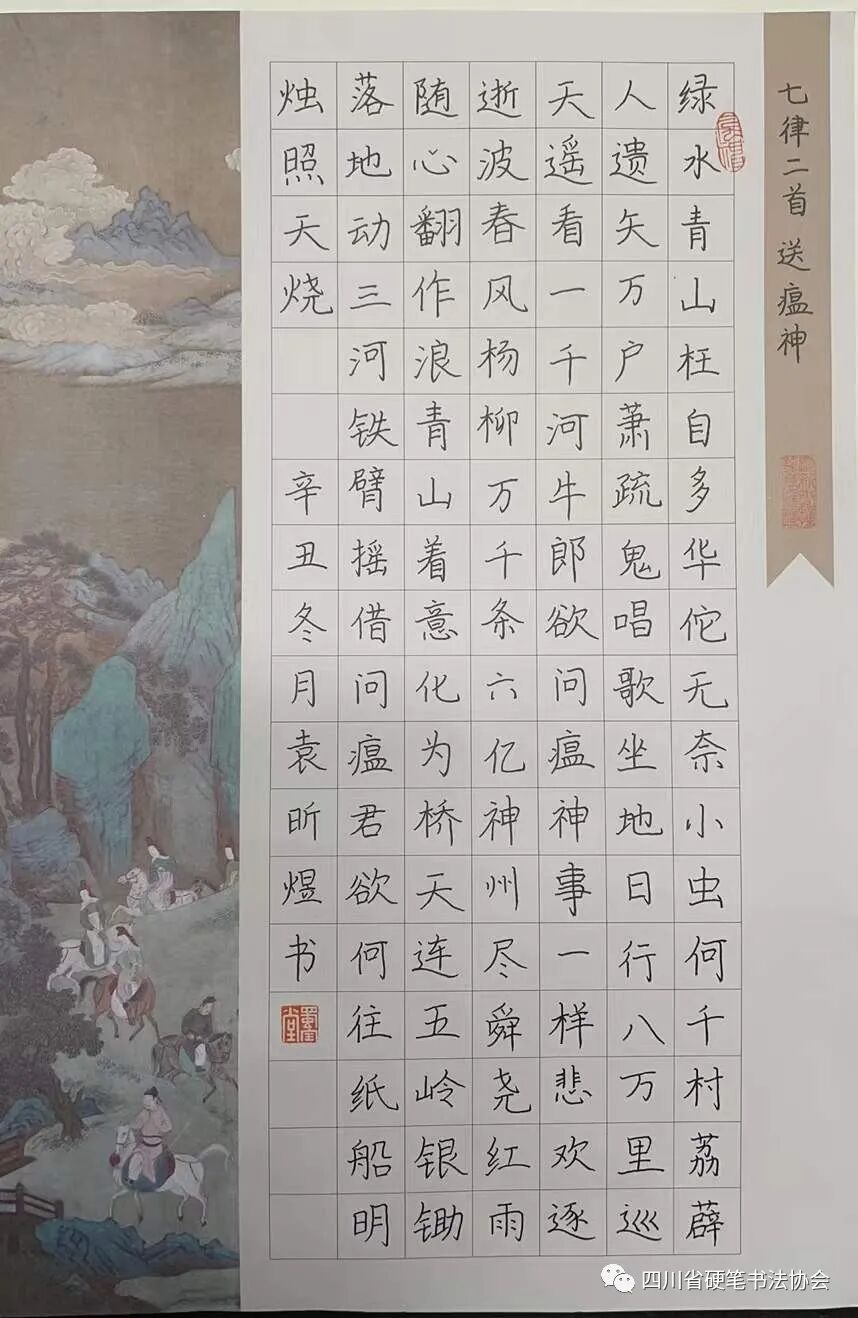 七律二首 送瘟神
绿水青山枉自多华佗无奈小虫何千村荔薜
人遗矢万户萧疏鬼唱歌坐地日行八万里巡
天遥看一千河牛郎欲问瘟神事一样悲欢逐
逝波春风杨柳万千条六亿神州尽舜尧红雨
随心翻作浪青山着意化为桥天连五岭银锄
落地动三河铁臂摇借问瘟君欲何往纸船明
烛照天烧 辛丑冬月袁昕煜书
四川省硬笔书法协会